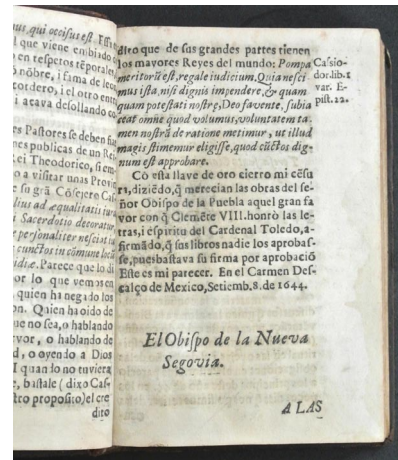 nus, qui occisus est
l que viene embiado
en respetos tēporale
nōbre, i fama de leo
cordero, i el otro ent
i acava desollando co
es Pastores se deben fia
nes publicas de un Re
ei Theodorico, si em
o a visitar unas Provi
e su grā Cōsejero Cas
lius ad æqualitatis tu
Sacerdotio decoratur
e personaliter nesciat iu
cunctos in cōmune loca
idiæ. Parece que lo di
or lo que vemos en
quien ha negado los
on. Quien ha oido de
ue no sea, o hablando
vor, o hablando de
d, o oyendo a Dios
I quan do no tuviera
e, bastale (dixo Cas-
tro proposito) el cre
dito
diro que de sus grandes partes tienen
los mayores Reyes del mundo: Pompa
meritorũ est, regale iudicium. Quia nesci
mus ista, nisi dignis impendere, & quam
quam potestati nostrę, Deo favente, subia
ceat omne quod volumus, voluntatem ta-
men nostrā de ratione metimur, ut illud
magis stimemur eligisse, quod cũctos dig-
num est approbare.
Cassio-
dor. lib. 1
var. E-
pist. 22.
Cō esta llave de oro cierro mi cēsu
ra, diziēdo, q̃ merecian las obras del se-
ñor Obispo de la Puebla aquel gran fa
vor con q̃ Clemēte VIII. honrò las le-
tras, i espiritu del Cardenal Toledo, a-
firmādo, q̃ sus libros nadie los aprobas-
se, pues bastava su firma por aprobació
Este es mi parecer. En el Carmen Des-
calço de Mexico, Setiemb. 8. de 1644.
El Obispo de la Nueva
Segovia.
A LAS